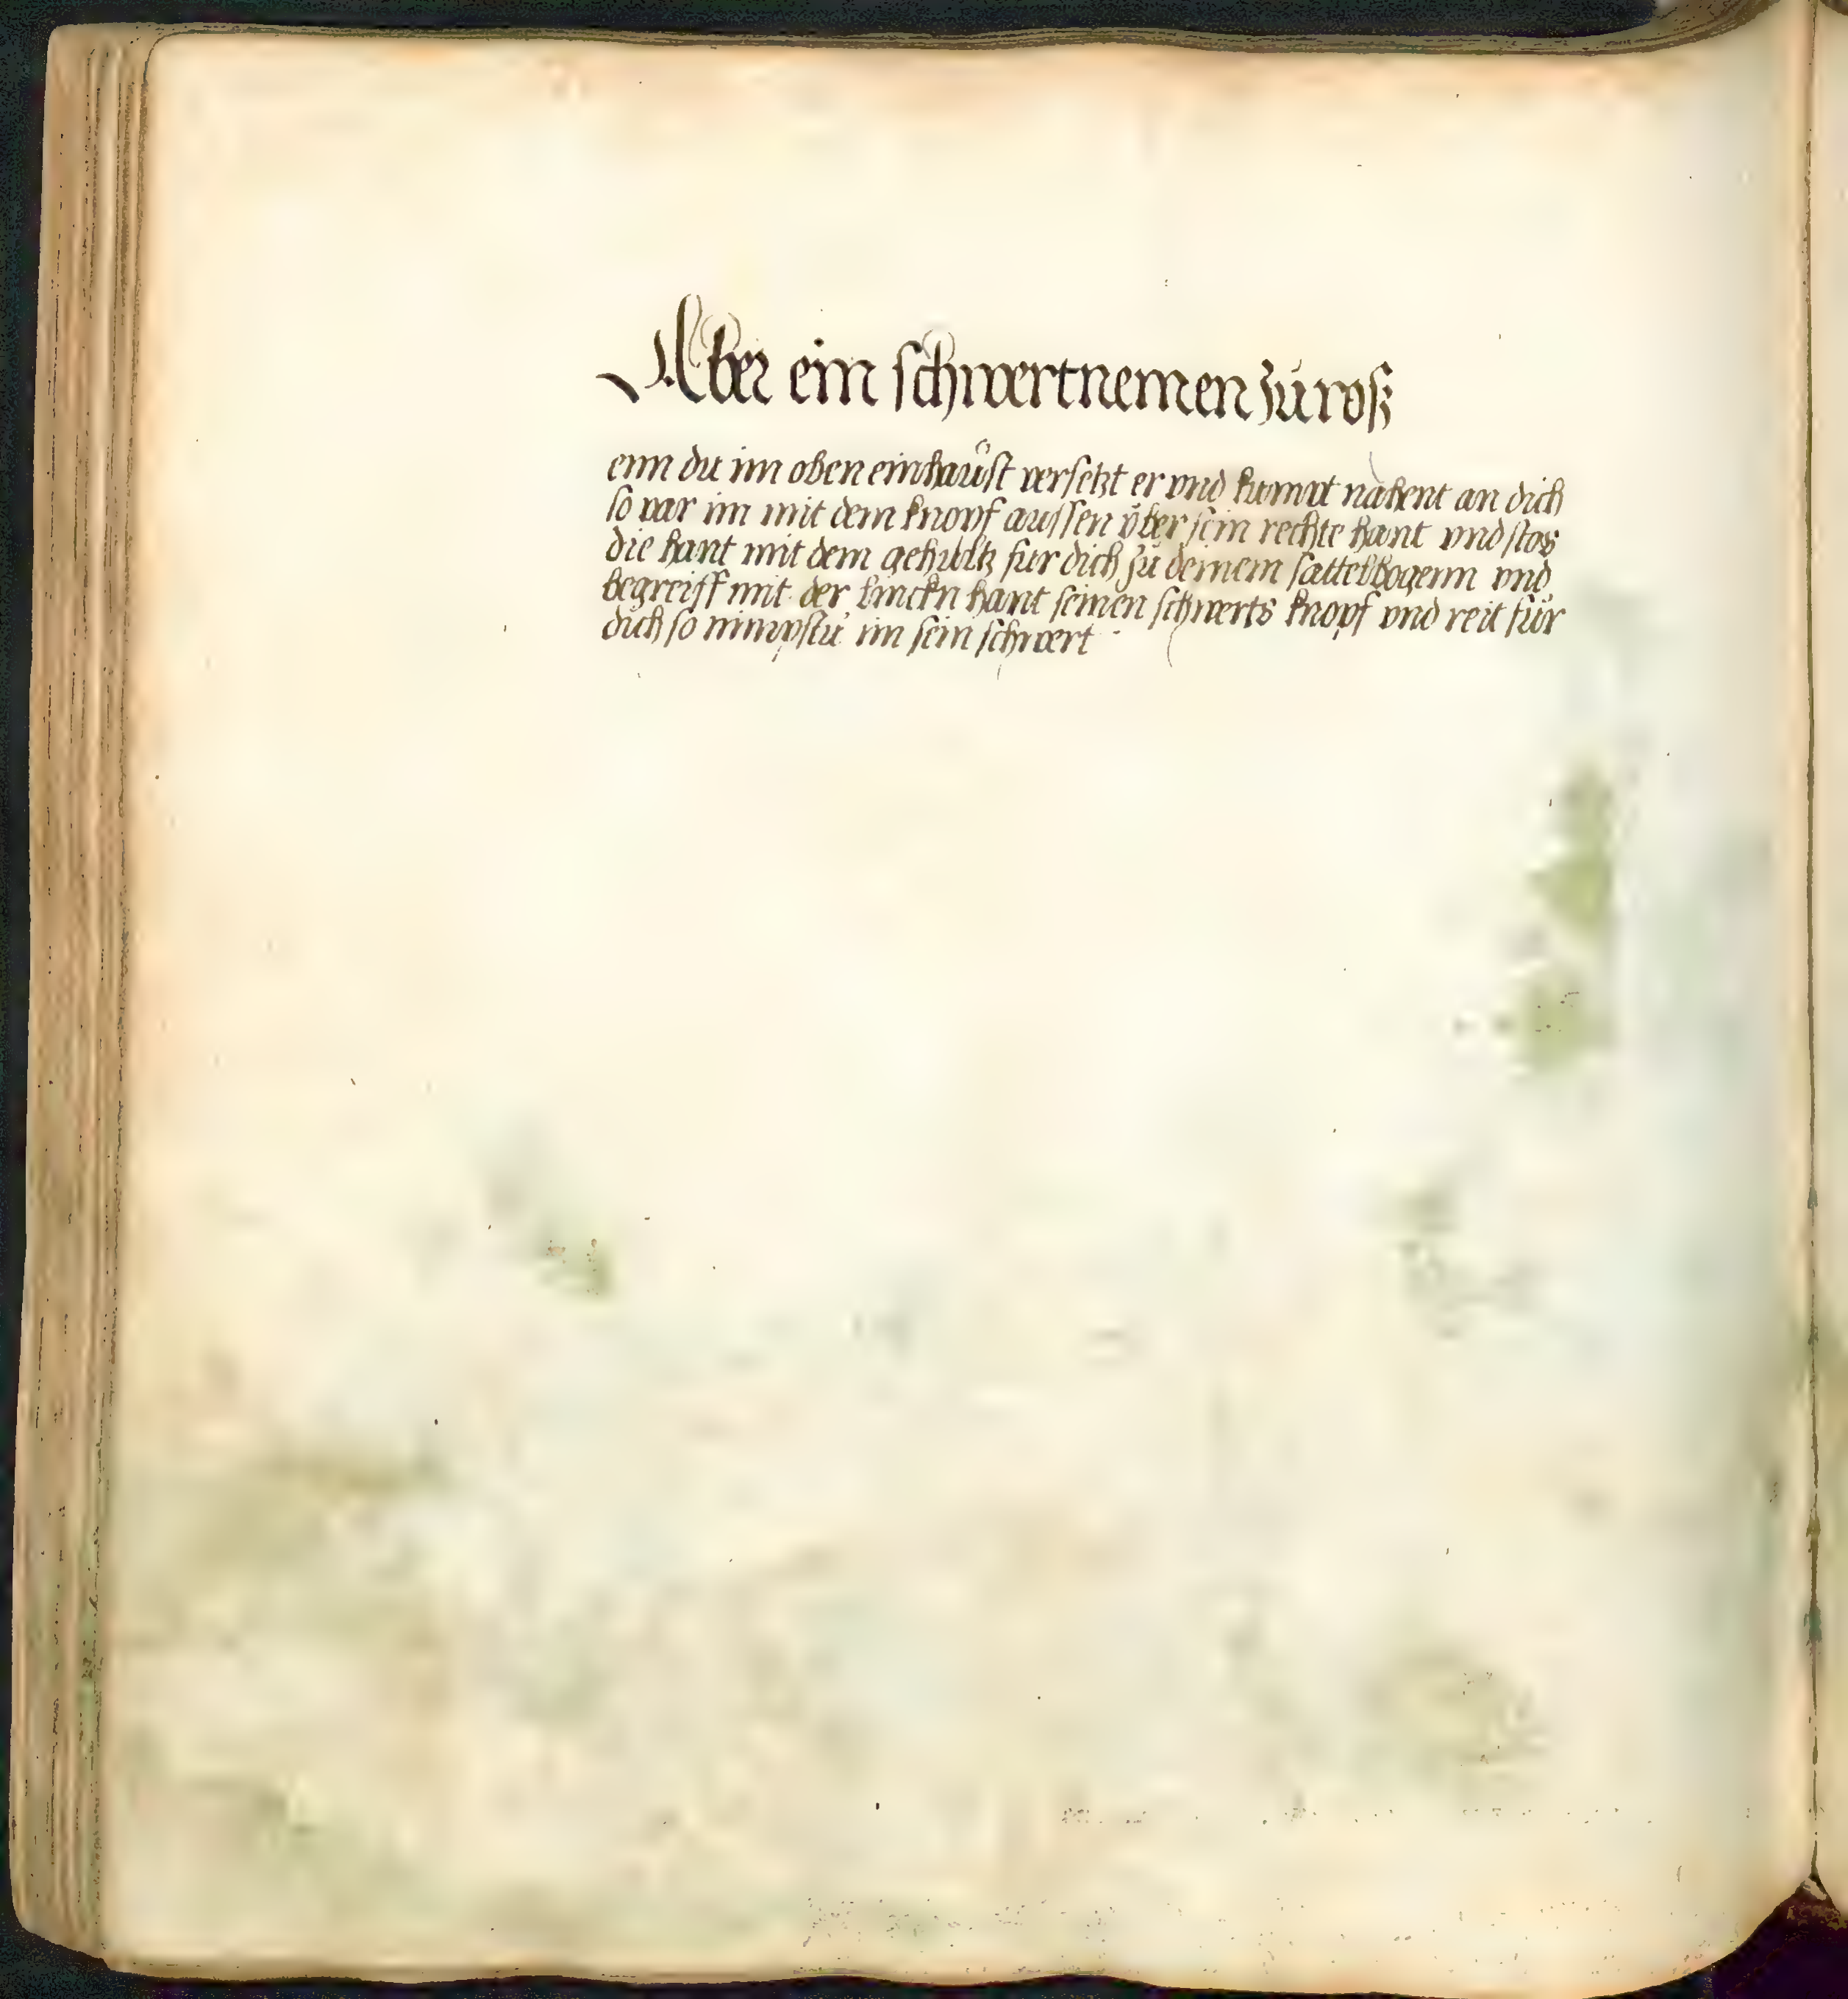 Aber ein schwertnemen zu roß
enn du im oben einhaust versetzt er vnd kumpt nahent an dich
so var im mit dem knopf aussen über sein rechte hant vnd stos
die hant mit dem gehultz fur dich zu deinem sattelbogenn vnd
begreiff mit der linckn hant seinen schwerts knopf vnd reit für
dich so nimpstu im sein schwert